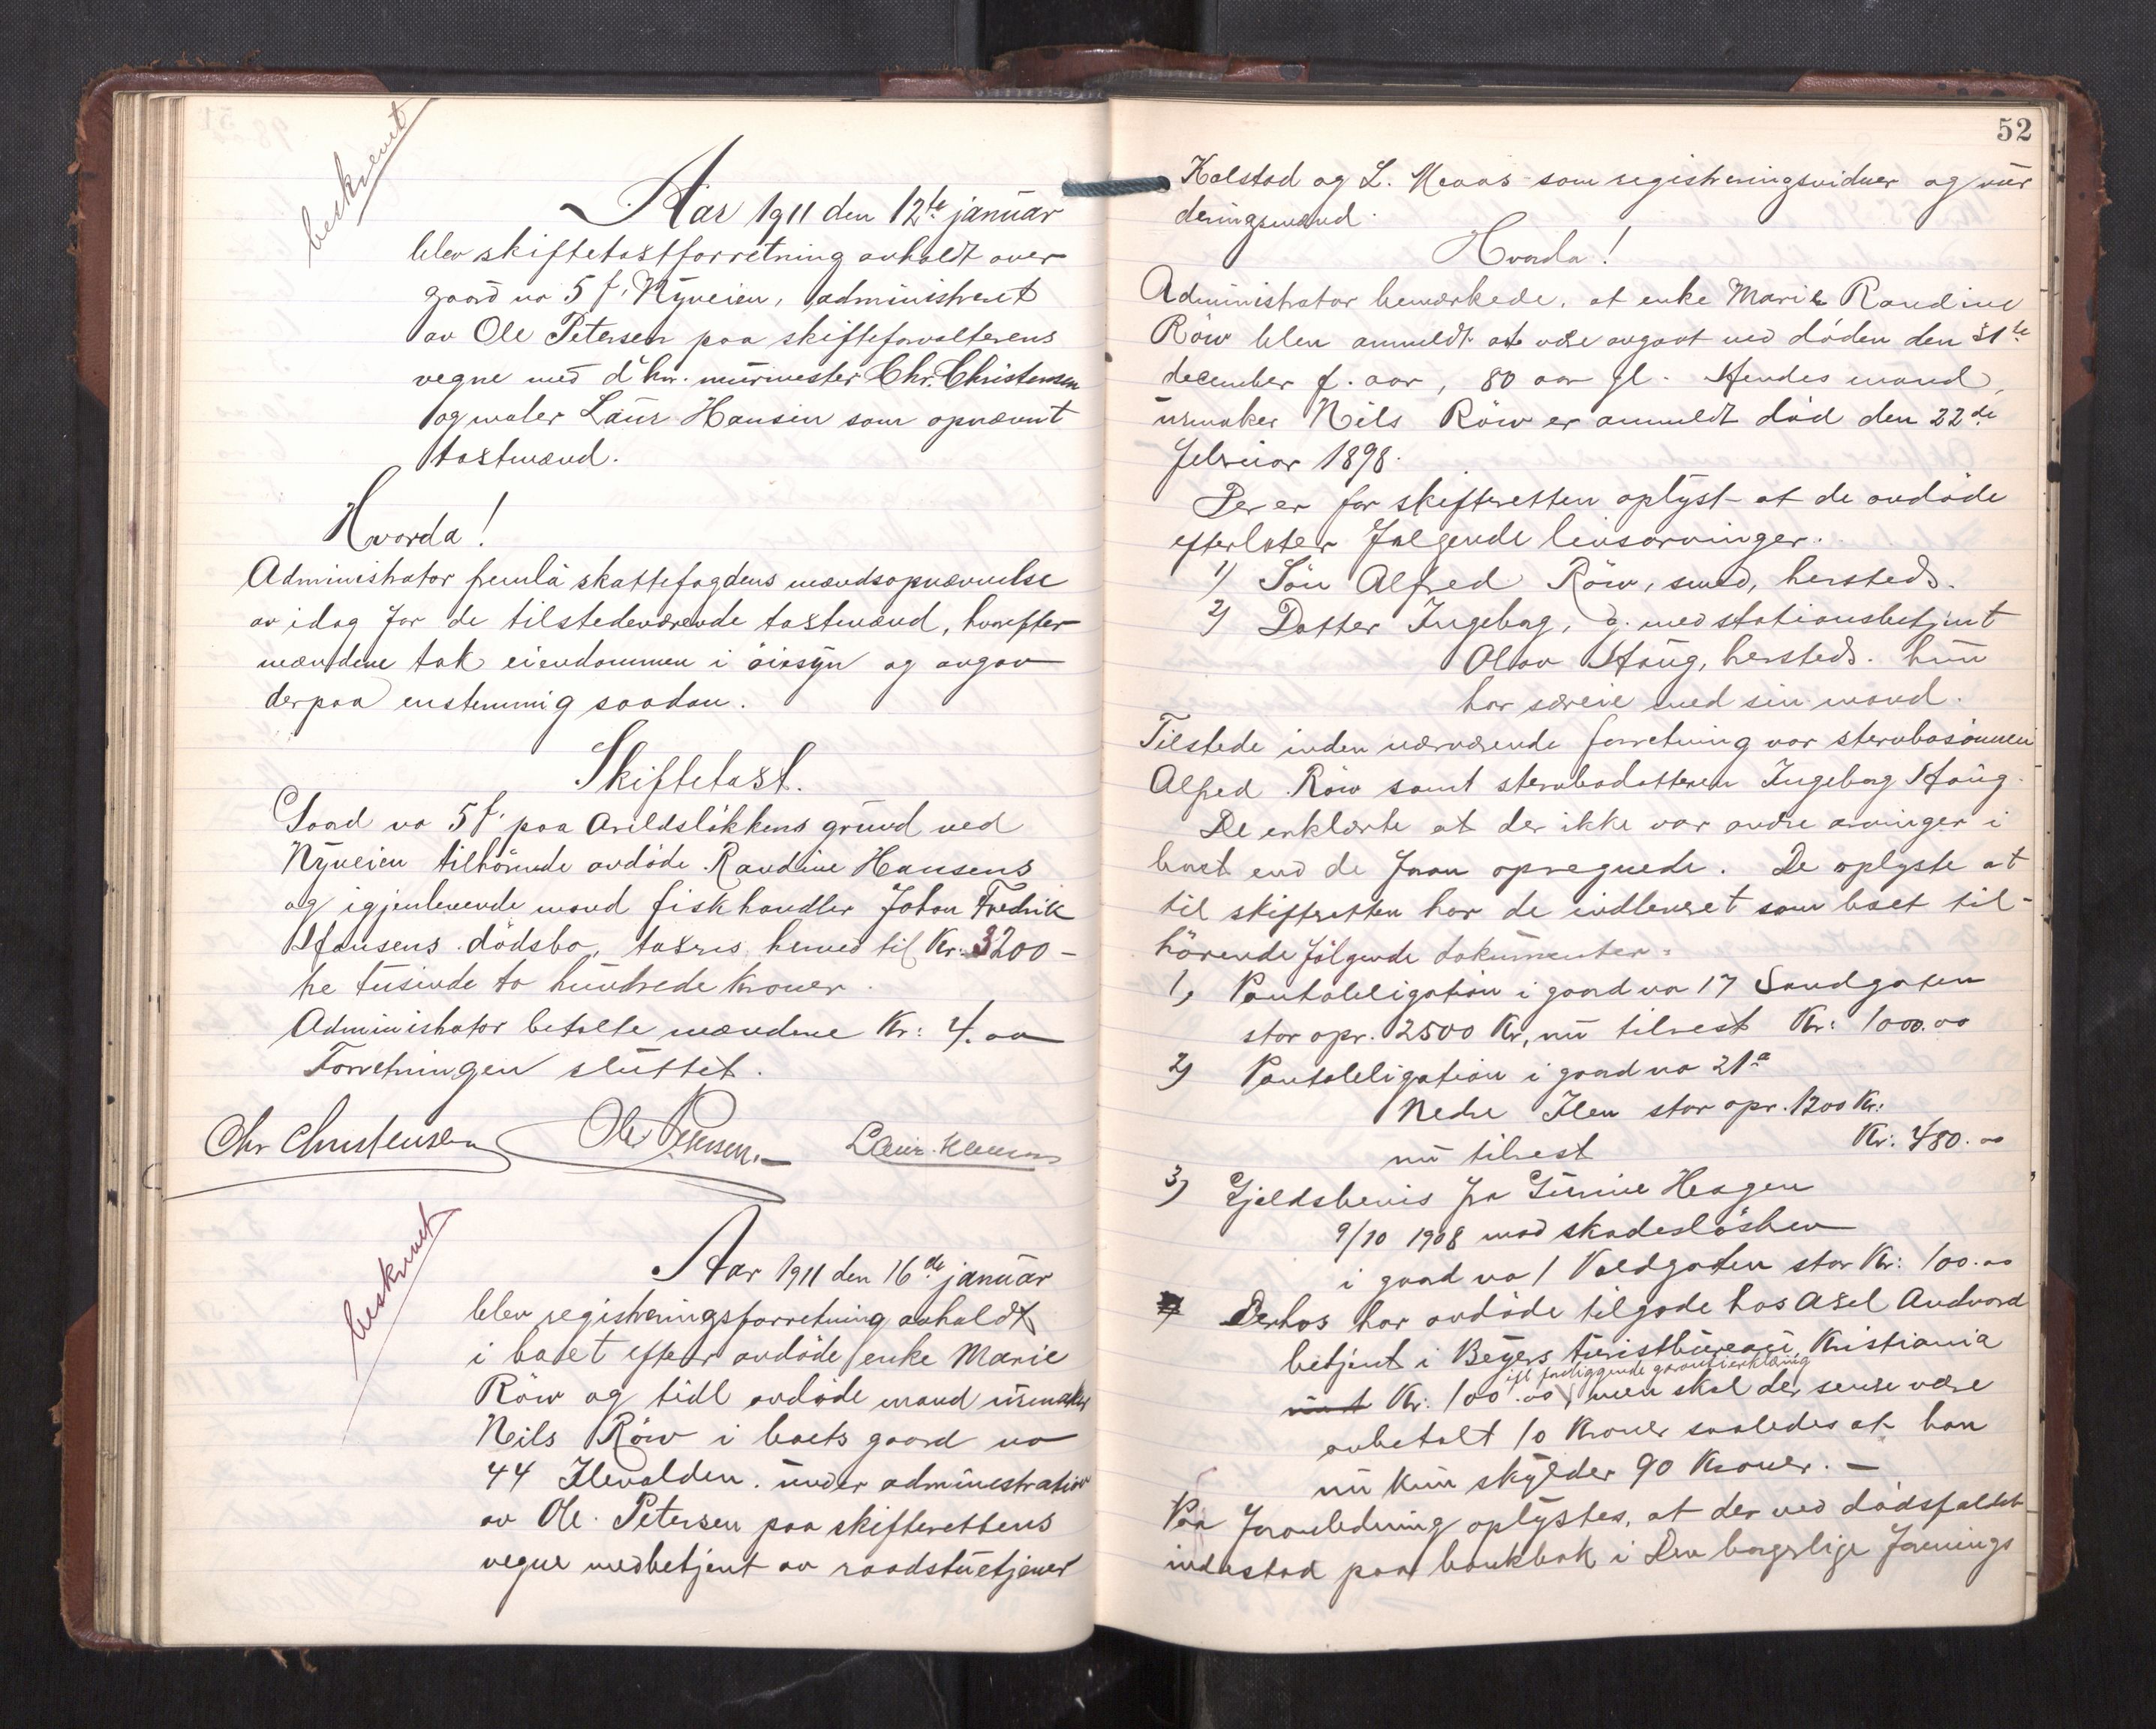 beskrevet
Aar 1911 den 12te januar
blev skiftetaxtforretning avholdt over
gaard no 5 f. Nyveien, administreret
av Ole Petersen paa skifteforvalterens
vegne med d'hrr. murmester Chr. Christensen
og maler Laur Hansen som opnævnt
taxtmænd.
Hvorda!
Administrator fremla skattefogdens mændsopnævnelse
av idag for de tilstedeværende taxtmænd, hvorefter
mændene tok eiendommen i øiesyn og avgav
derpaa enstemmig saadan.
Skiftetaxt.
Gaard no 5 f. paa Arildsløkkens grund ved
Nyveien tilhørende avdøde Randine Hansens
og igjenlevende mand fiskhandler Johan Fredrik
Hansens dødsbo, taxeres herved til Kr: 3200 -
tre tusinde to hundrede kroner.
Administrator betalte mændene Kr: 4.00
Forretningen sluttet.
Chr Christensen Ole Petersen. Laur. Hansen
beskrevet
Aar 1911 den 16de januar
blev registreringsforretning avholdt
i boet efter avdøde enke Marie
Röw og tidl avdøde mand urmaker
Nils Röw i boets gaard no
44 Ilevolden. under administration
av Ole Petersen paa skifterettens
vegne medbetjent av raadstuetjener
52
Kolstad og L. Moaas som registreringsvidner og vur
deringsmænd.
Hvorda!
Administrator bemærkede, at enke Marie Randine
Röw blev anmeldt at være avgaat ved døden den 31te
december f. aar, 80 aar gl. Hendes mand,
urmaker Nils Röw er anmeldt død den 22de
februar 1898.
Der er for skifteretten oplyst at de avdøde
efterlater følgende livsarvinger.
1) Søn Alfred Röw, smed, hersteds.
2) Datter Ingeborg, g. med stationsbetjent
Olav Haug, hersteds. hun
har særeie med sin mand.
Tilstede inden nærværende forretning var stervbosønnen
Alfred Röw samt stervbodatteren Ingeborg Haug.
De erklærte at der ikke var andre arvinger i
boet end de foran opregnede. De oplyste at
til skifteretten har de indleveret som boet til-
hørende følgende dokumenter:
1, Pantobligation i gaard no 17 Sandgaten
stor opr. 2500 Kr, nu tilrest Kr: 1000.00
2) Pantobligation i gaard no 21a
Nedre Ilen stor opr. 1200 Kr:
nu tilrest Kr: 480.00
3) Gjeldsbevis fra Gurine Hagen
9/10 1908 med skadesløsbrev
i gaard no 1 Voldgaten stor Kr: 100.00
Derhos har avdøde tilgode hos Axel Andvord
betjent i Beyers turistbureau, Kristiania
ifl. foreliggende garantierklæring
Kr: 100.00 men skal der senere være
avbetalt 10 Kroner saaledes at han
nu kun skylder 90 Kroner. —
Paa foranledning oplystes, at der ved dødsfaldet
indestod paa bankbok i Den borgerlige Forenings